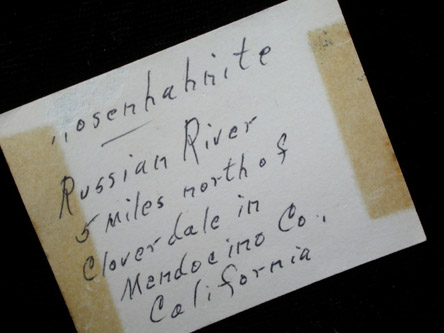 Rosenhahnite
Russian River
5 miles north of
Cloverdale in
Mendocino Co.,
California